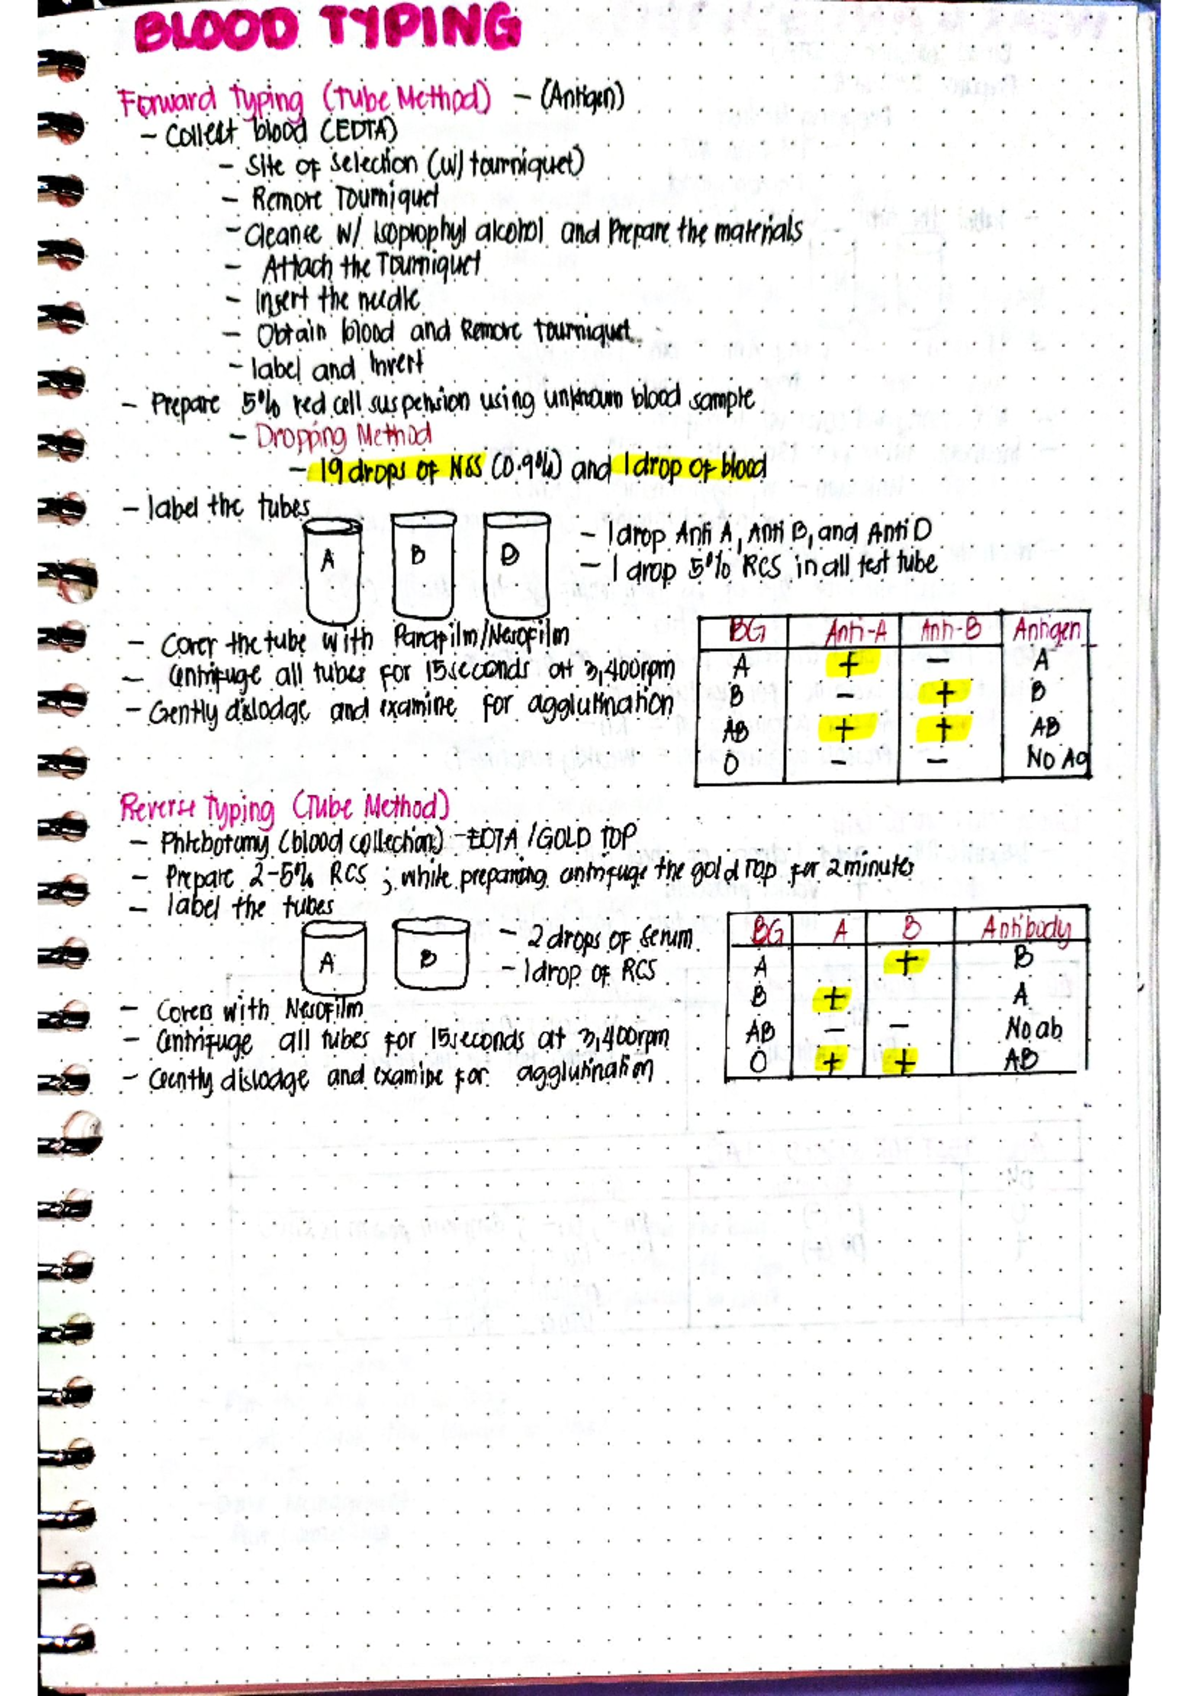 BLOOD TYPING
Forward Typing (Tube Method) - (Antigen)
- Collect blood (EDTA)
- Site of selection (w/ tourniquet)
- Remove Tourniquet
- Cleanse w/ Isoprophyl alcohol and Prepare the materials
- Attach the Tourniquet
- Insert the needle
- Obtain blood and Remove tourniquet
- label and Invert
- Prepare 5% red cell suspension using unknown blood sample
- Dropping Method
- 19 drops of NSS (0.9%) and 1 drop of blood
- label the tubes
A B D
- 1 drop Anti A, Anti B, and Anti D
- 1 drop 5% RCS in all test tube
- Cover the tube with Parapilm/Nesofilm
- Centrifuge all tubes for 15seconds at 3,400rpm
- Gently dislodge and examine for agglutination
BG Anti-A Anti-B Antigen
A + - A
B - + B
AB + + AB
O - - No Ag
Reverse Typing (Tube Method)
- Phlebotomy (blood collection) - EDTA / GOLD TOP
- Prepare 2-5% RCS ; while preparing centrifuge the gold TOP for 2 minutes
- label the tubes
A B
- 2 drops of serum
- 1 drop of RCS
- Covers with Nesofilm
- Centrifuge all tubes for 15seconds at 3,400rpm
- Gently dislodge and examine for agglutination
BG A B Antibody
A + B
B + A
AB - - No ab
O + + AB